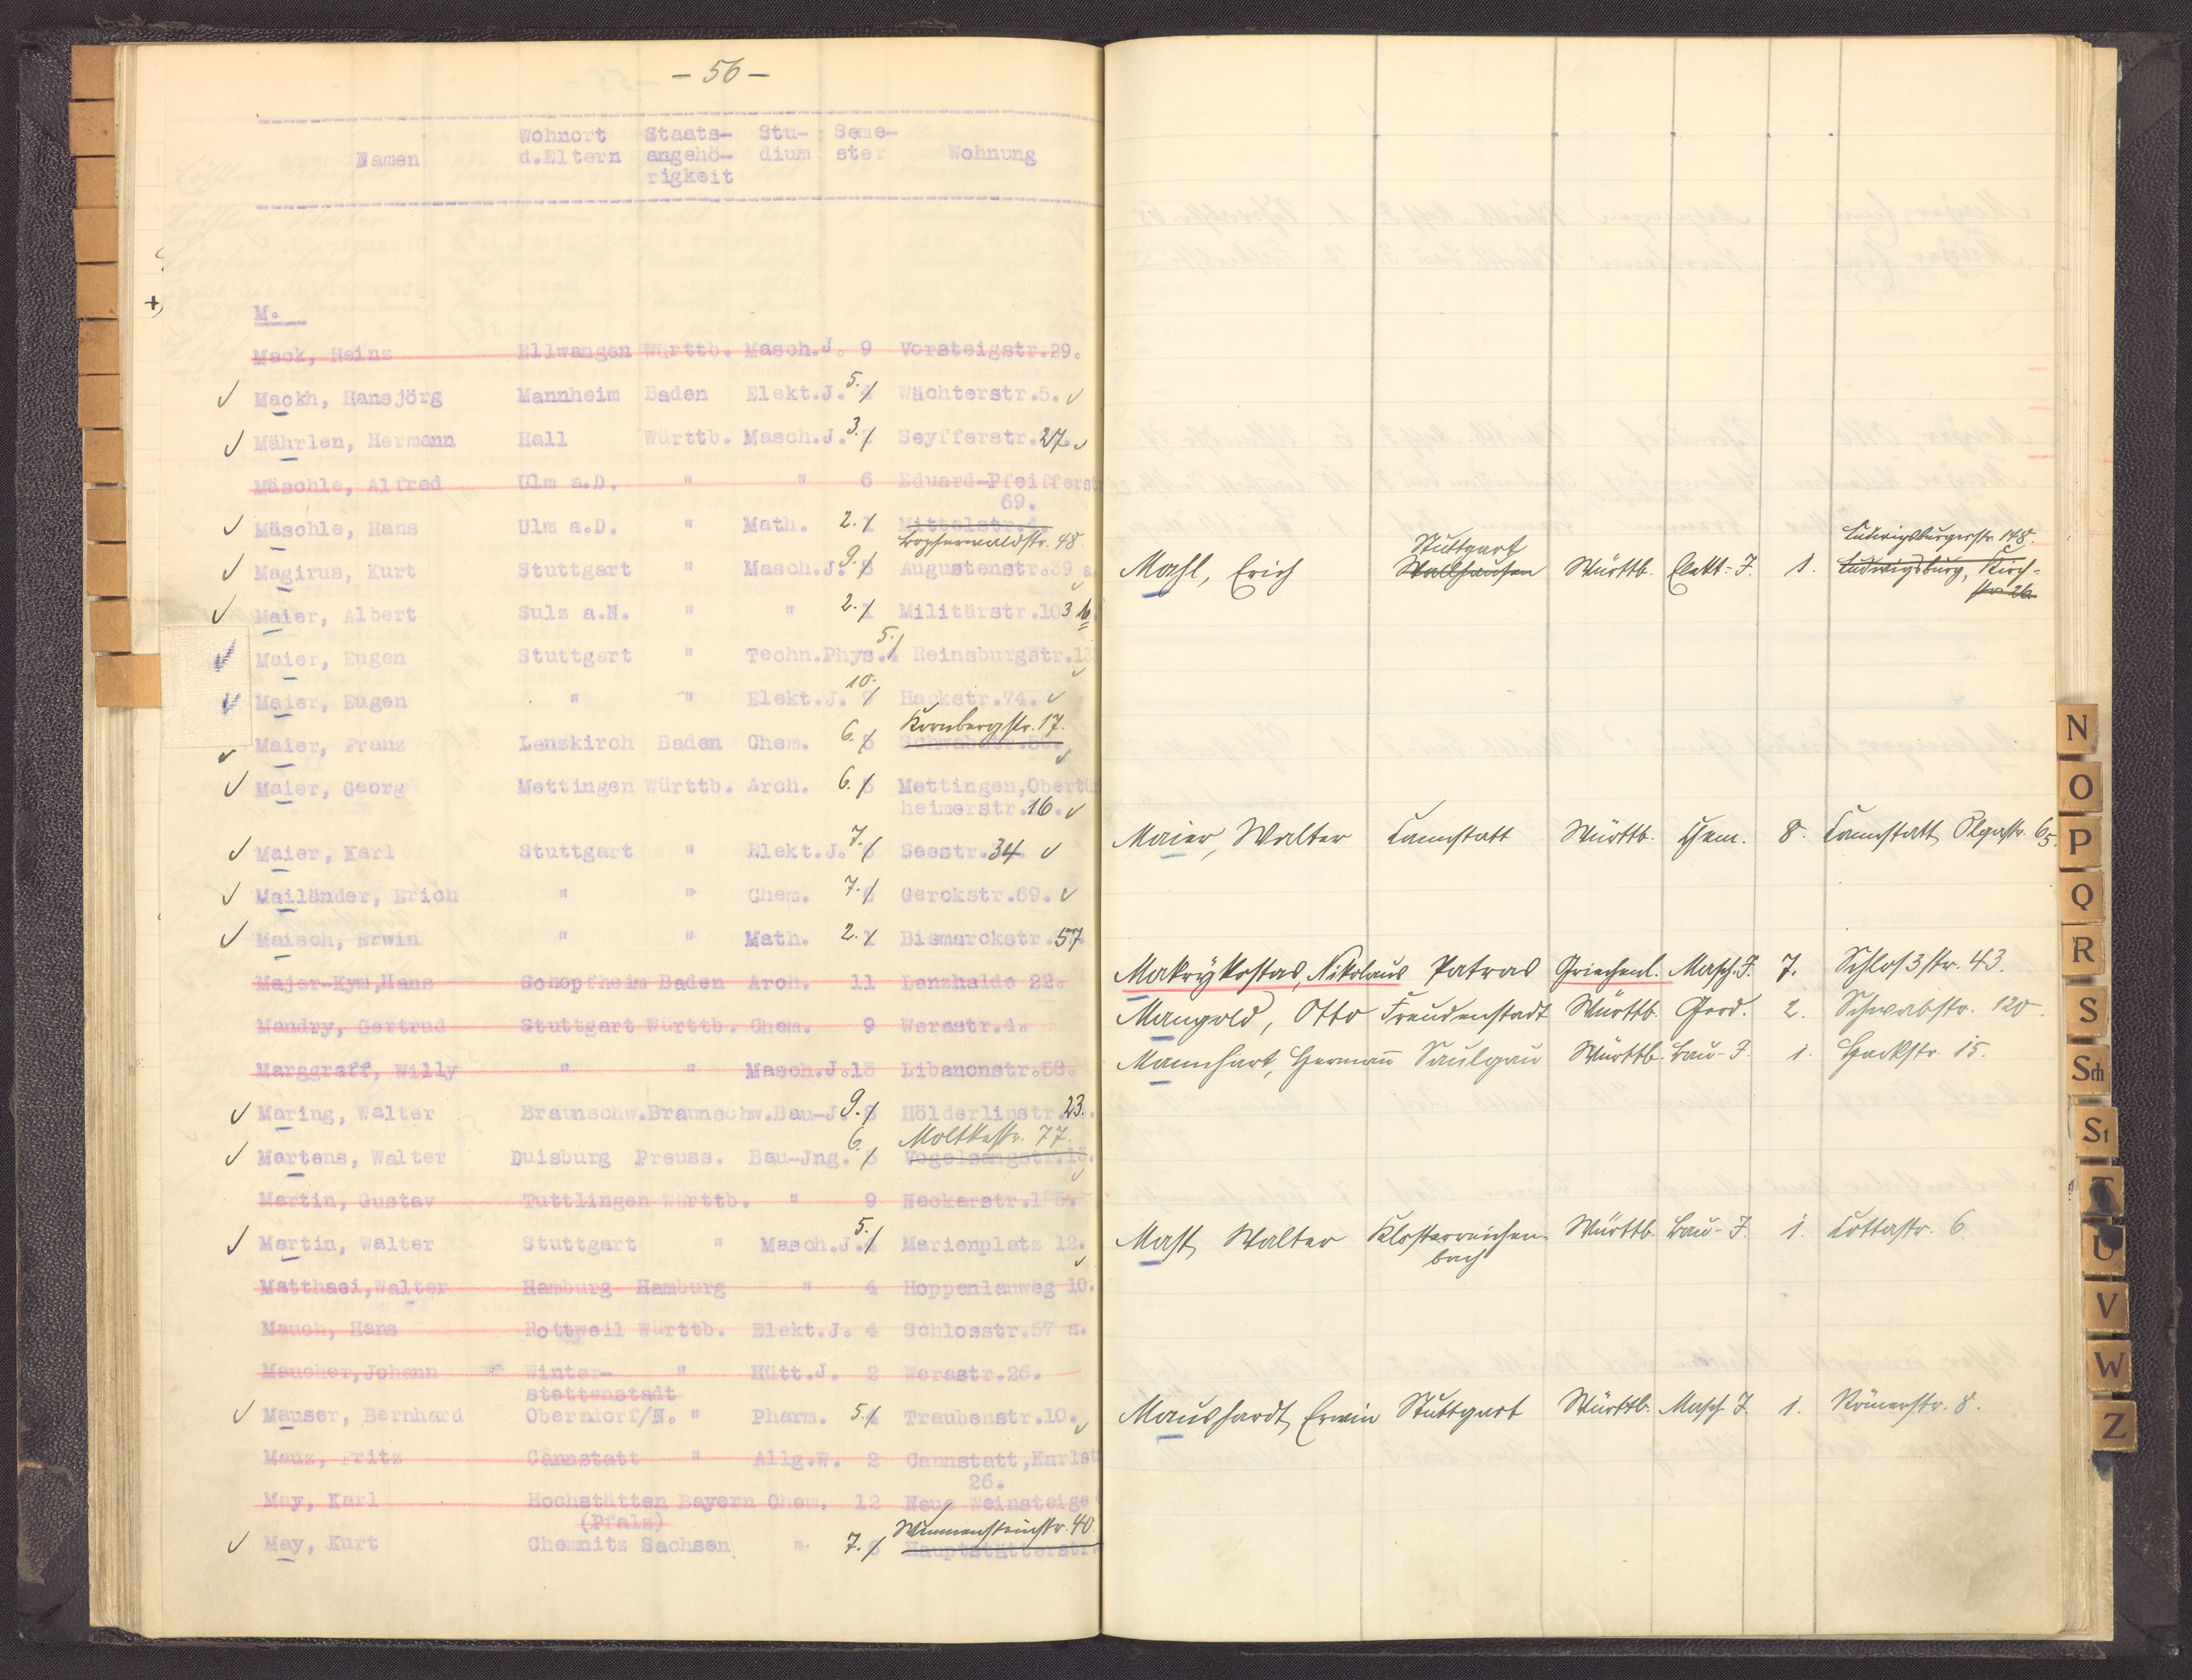 - 56 -
Namen Wohnort d.Eltern Staats-angehö-rigkeit Stu-dium Seme-ster Wohnung
M.
Mack, Heinz Ellwangen Württb. Masch.J. 9 Vorsteigstr.29.
Mackh, Hansjörg Mannheim Baden Elekt.J. 5. 4 Wächterstr.5.
Mährlen, Hermann Hall Württb. Masch.J. 3. Seyfferstr.27.
Mäschle, Alfred Ulm a.D. " " 6 Eduard-Pfeifferstr
69.
Mäschle, Hans Ulm a.D. " Math. 2. 1 Mittelstr.4.
Bopserwaldstr. 48
Magirus, Kurt Stuttgart " Masch.J. 9. 8 Augustenstr.39 a.
Maier, Albert Sulz a.N. " " 2. 1 Militärstr.103
Maier, Eugen Stuttgart " Techn.Phys. 5. Reinsburgstr.13
Maier, Eugen " " Elekt.J. 10. 9 Hackstr.74.
Kornbergstr. 17.
Maier, Franz Lenzkirch Baden Chem. 6. 5
Maier, Georg Mettingen Württb. Arch. 6. 5 Mettingen,Obertür
heimerstr.16.
Maier, Karl Stuttgart " Elekt.J. 7. 6 Seestr.34
Mailänder, Erich " " Chem. 7. 6 Gerokstr.69.
Maisch, Erwin " " Math. 2. 1 Bismarckstr.57
Major-Kym,Hans Schopfheim Baden Arch. 11 Lenzhalde 22.
Mandry, Gertrud Stuttgart Württb. Chem. 9 Werastr.4.
Marggraff, Willy " " Masch.J.13 Libanonstr.58.
Maring, Walter Braunschw.Braunschw.Bau-J. 9. 8 Hölderlinstr.23.
Moltkestr. 77.
Martens, Walter Duisburg Preuss. Bau-Jng. 6. 5 Vogelsangstr.13.
Martin, Gustav Tuttlingen Württb. " 9 Neckarstr.
Martin, Walter Stuttgart " Masch.J. 5. Marienplatz 12.
Matthaei,Walter Hamburg Hamburg " 4 Hoppenlauweg 10.
Mauch, Hans Rottweil Württb. Elekt.J. 4 Schlosstr.57 a.
Maucher,Johann Winter- " Hütt.J. 2 Werastr.26.
stettenstadt
Mauser, Bernhard Oberndorf/N. " Pharm. 5. 4 Traubenstr.10.
Mauz, Fritz Cannstatt " Allg.W. 2 Cannstatt,Karlst
26.
May, Karl Hochstätten Bayern Chem. 12 Neue Weinsteige
(Pfalz)
Wunnensteinstr. 40
May, Kurt Chemnitz Sachsen " 7. 6 Hauptstätterstr.
Stuttgart Ludwigsburgerstr. 148.
Mahl, Erich Wallhausen Württb. Elekt-J. 1. Ludwigsburg, Kirch-
str. 26
Maier, Walter Cannstatt Württb. Chem. 8. Cannstatt, Olgastr. 65.
Makrykostas, Nikolaus Patras Griechenl. Masch.J. 7. Schloßstr. 43.
Mangold, Otto Freudenstadt Württb. Geod. 2. Schwabstr. 120.
Mannhart, Hermann Saulgau Württb. Bau-J. 1. Hackstr. 15.
Mast, Walter Klosterreichen- Württb. Bau-J. 1. Cottastr. 6.
bach
Maushardt, Erwin Stuttgart Württb. Masch J. 1. Römerstr. 8.
N
O
P
Q
R
S
Sch
St
T
U
V
W
Z